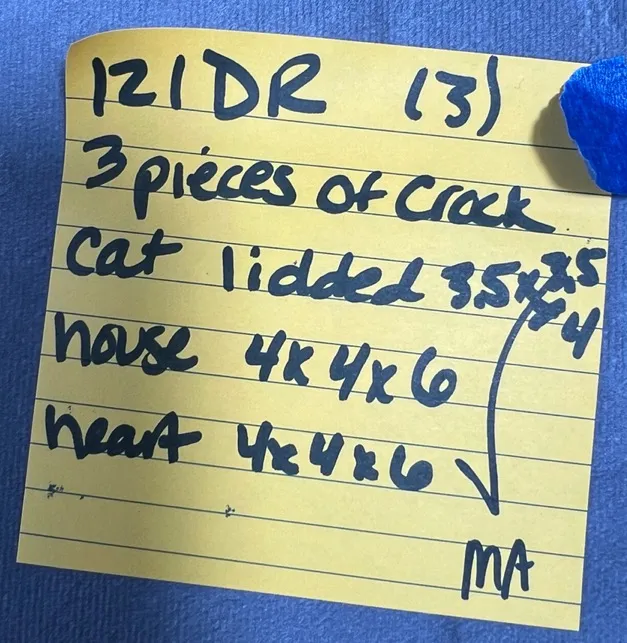 121DR (3)
3 pieces of Crock
Cat lidded 3.5x3.5
x4
house 4x4x6
heart 4x4x6
MA